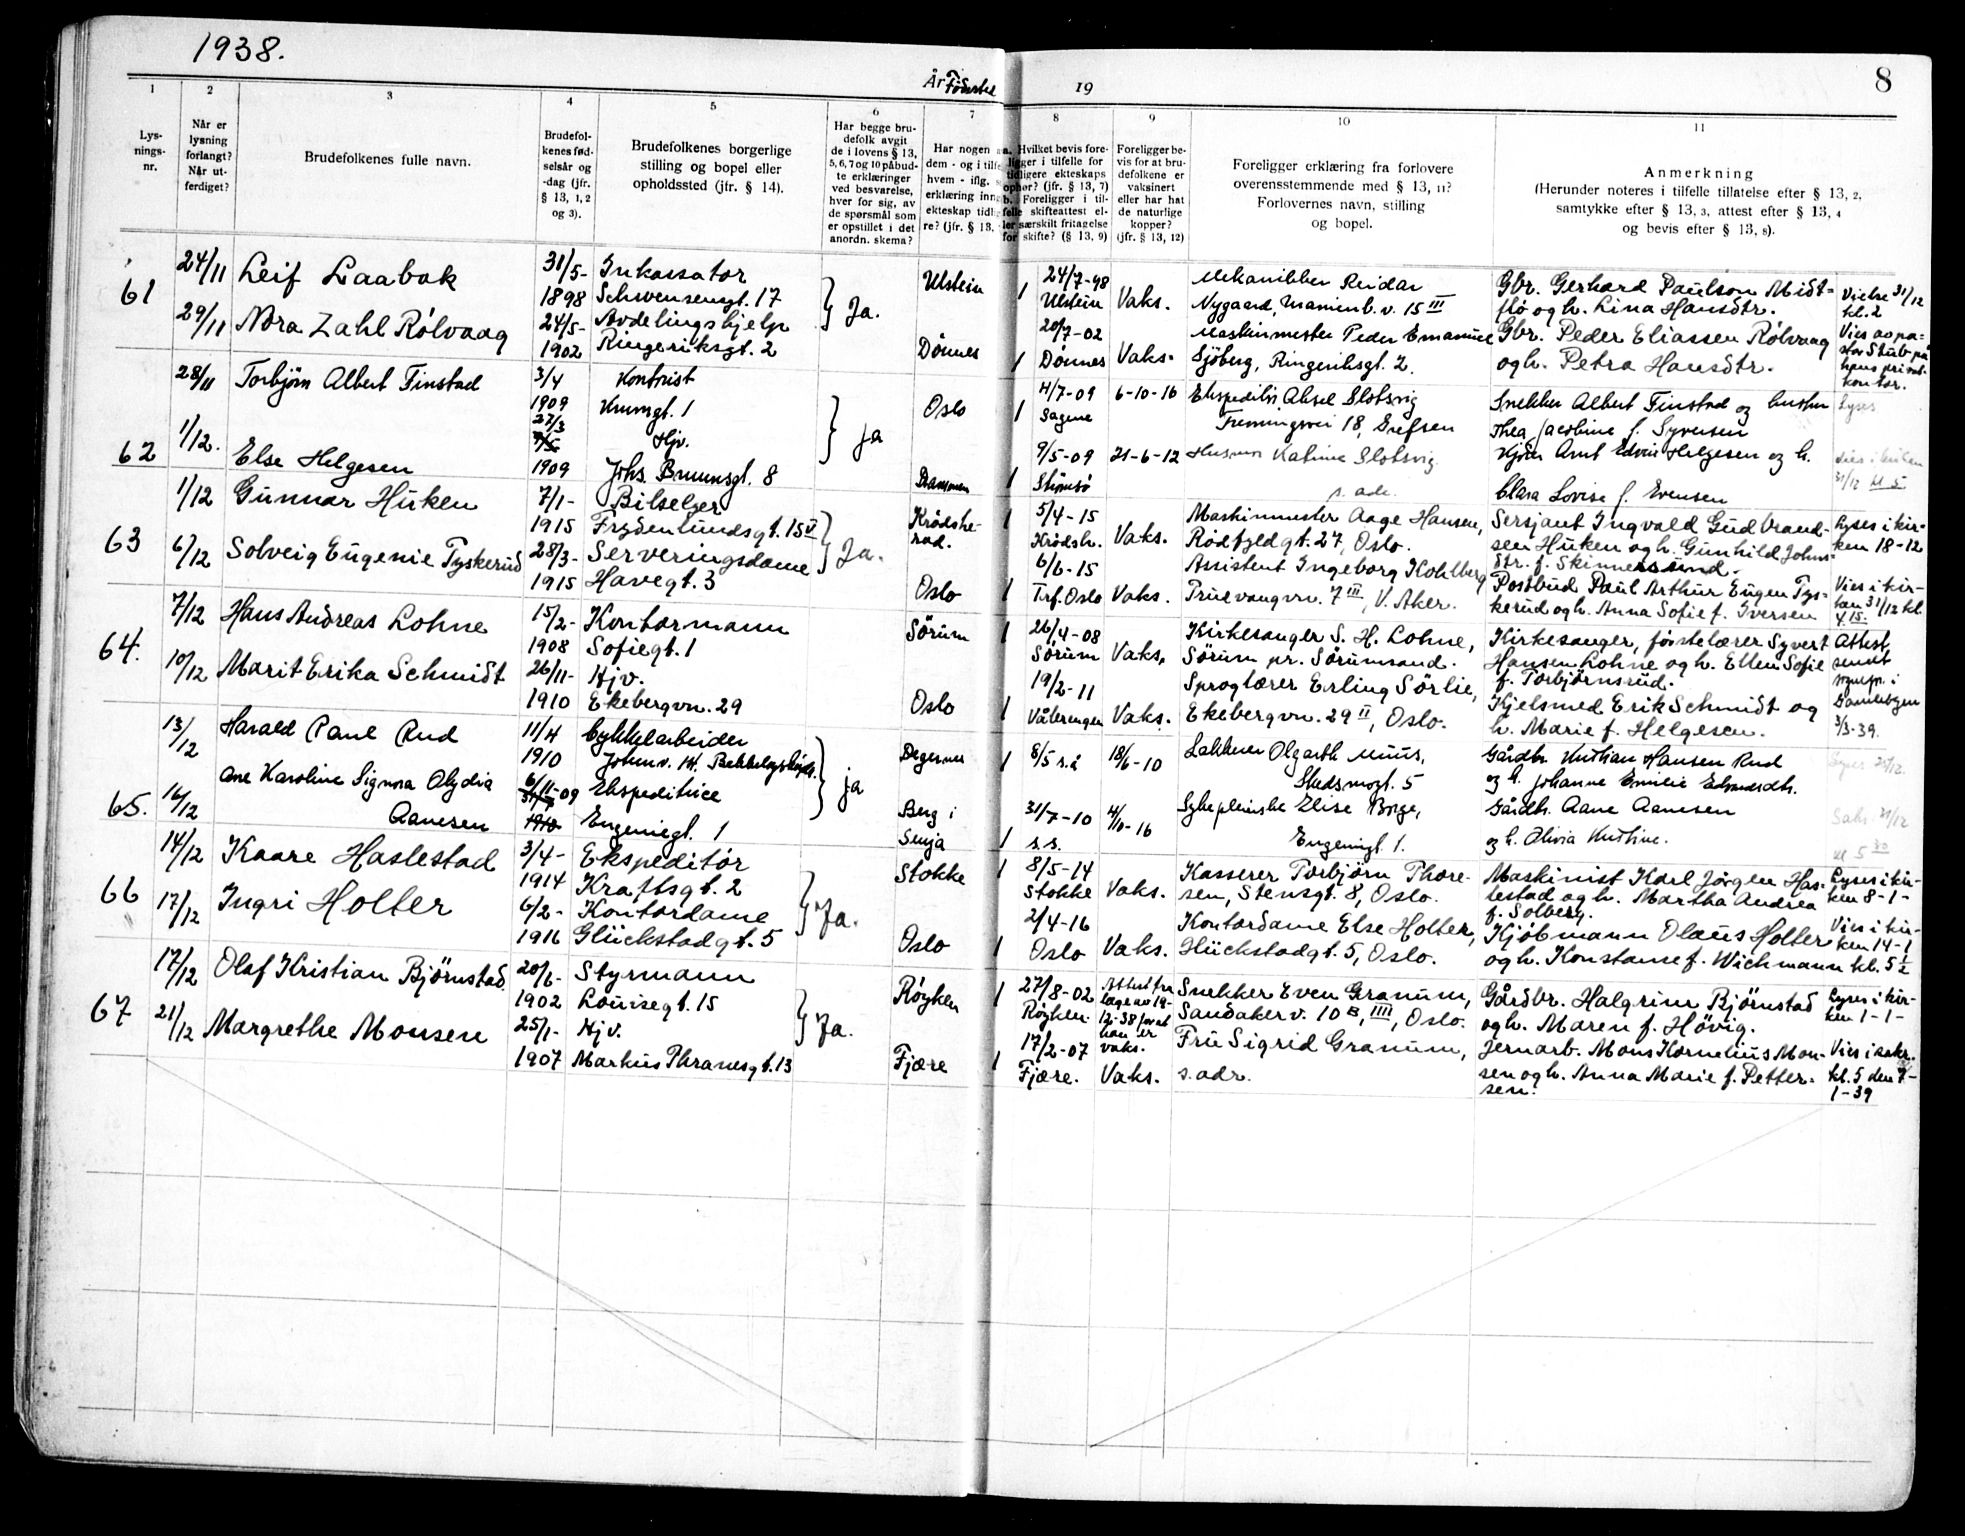 1938.
År Fødested
19
8
1
2
3
4
5
6
7
8
9
10
11
Lysnings-nr.
Når er lysning forlangt? Når utferdiget?
Brudefolkenes fulle navn.
Brudefolkenes fødselsår og -dag (jfr. § 13, 1, 2 og 3).
Brudefolkenes borgerlige stilling og bopel eller opholdssted (jfr. § 14).
Har begge brudefolk avgit de i lovens § 13, 5, 6, 7 og 10 påbudte erklæringer ved besvarelse, hver for sig, av de spørsmål som er opstillet i det anordn. skema?
Har nogen dem - og i tilf hvem - iflg. erklæring inng ekteskap tidl re? (jfr. § 13,
a. Hvilket bevis foreligger i tilfelle for tidligere ekteskaps ophør? (jfr. § 13, 7) b. Foreligger i tilfelle skifteattest eller særskilt fritagelse for skifte? (§ 13, 9)
Foreligger bevis for at brudefolkene er vaksinert eller har hat de naturlige kopper? (jfr. § 13, 12)
Foreligger erklæring fra forlovere overensstemmende med § 13, 11? Forlovernes navn, stilling og bopel.
Anmerkning (Herunder noteres i tilfelle tillatelse efter § 13, 2, samtykke efter § 13, 3, attest efter § 13, 4 og bevis efter § 13, 8).
61 24/11 Leif Laabak 31/5-1898 Inkassator Schwensensgt. 17 } Ja. Ulstein 1 24/7-98 Ulstein Vaks. Mekanikker Reidar Nygaard, Marienb.v. 15 III Gbr. Gerhard Paulson Midtflø og h. Lina Hansdtr. Vielse 31/12 kl. 2
29/11 Nora Zahl Rølvaag 24/5-1902 Avdelingshjelp Ringeriksgt. 2 Dønnes 1 20/7-02 Dønnes Vaks. Maskinmester Peder Emanuel Sjöberg, Ringeriksgt. 2. Gbr. Peder Eliassen Rølvaag og h. Petra Hansdtr. Vies av pastor Stub på hans privatkontor.
62 28/11 Torbjørn Albert Finstad 3/4 1909 Kontorist Krumgt. 1 } ja Oslo 1 4/7-09 Sagene 6-10-16 Ekspeditør Aksel Slotsvig Fremingsvei 18, Grefsen Snekker Albert Finstad og hustru Thea Jacobine f. Syversen Lyses
1/12. Else Helgesen 27/3 1909 Hjv. Johs. Brunsgt. 8 Drammen 1 9/5-09 Strømsø 21-6-12 Husmor Katrine Slotsvig s. adr. Kjører Arnt Edvin Helgesen og h. Clara Lovise f. Evensen Vies i kirken 31/12 kl 5
63 1/12 Gunnar Huken 7/1-1915 Bilselger Frydenlundsgt. 15 II } Ja. Krødsherad. 1 5/4-15 Krødsh. Vaks. Maskinmester Aage Hansen, Rödfyldgt. 27, Oslo. Sersjant Ingvald Gudbrandsen Huken og h. Gunhild Johnsdtr. f. Skinnessund. Lyses i kirken 18-12
6/12 Solveig Eugenie Tyskerud 28/3-1915 Serveringsdame Havegt. 3 Oslo 1 6/6-15 Trf. Oslo Vaks. Assistent Ingeborg Kohlberg Pruevangvn. 7 III, V. Aker. Postbud Paul Arthur Eugen Tyskerud og h. Anna Sofie f. Iversen Vies i kirken 31/12 kl. 4.15.
64. 7/12 Hans Andreas Lohne 15/2-1908 Kontormann Sofiegt. 1 Sørum 1 26/4-08 Sørum Vaks. Kirkesanger S. H. Lohne, Sørum pr. Sørumsand. Kirkesanger, førstelærer Syvert Hansen Lohne og h. Ellen Sofie f. Torbjørnsrud. Attest sendt sognepr. i Gamlebyen 3/3-39.
10/12 Marit Erika Schmidt 26/11-1910 Hjv. Ekebergvn. 29 Oslo 1 19/2-11 Vålerengen Vaks. Sproglærer Erling Sörlie, Ekebergvn. 29 II, Oslo. Kjelsmed Erik Schmidt og h. Marie f. Helgesen.
65. 13/12 Harald Paul Rud 11/4 1910 Cykkelarbeider Johnv. 14, Bekkelagshøgda } ja Degernes 1 8/5 s.å 18/6-10 Lakkerer Olgarth Muus, Stedsmogt. 5 Gårdbr. Kristian Hansen Rud og h. Johanne Emilie Edvardsdtr. Lyses 25/12.
16/12 Ane Karoline Signora Olydia Aanesen 6/11-09 Ekspeditrice Eugeniegt. 1 Berg i Senja 1 31/7-10 s.s. 4/10-16 Sykepleierske Elise Borge, Eugeniegt 1. Gårdbr. Aane Aanesen og h. Olivia Kristine. Sakr 31/12 kl 5 30
66 14/12 Kaare Haslestad 3/4-1914 Ekspeditör Kraftsgt. 2 } Ja. Stokke 1 8/5-14 Stokke Vaks. Kasserer Torbjörn Thoresen, Stensgt. 8, Oslo. Maskinist Karl Jørgen Haslestad og h. Martha Andrea f. Solberg. Lyses i kirken 8-1-
17/12 Ingri Holter 6/2-1916 Kontordame Glückstadgt. 5 Oslo 1 2/4-16 Oslo Vaks. Kontordame Else Holter, Glückstadgt. 5, Oslo. Kjöbmann Olaus Holter og h. Konstanse f. Wichmann Vies i kirken 14-1 kl. 5 1/2
67 17/12 Olaf Kristian Bjørnstad 20/6-1902 Styrmann Louisegt. 15 } Ja. Røyken 1 27/8-02 Røyken Attest fra lege av 19-12-38 for at han er vaks. Snekker Even Granum, Sandakerv. 10 B, IIII, Oslo. Gårdbr. Halgrim Bjørnstad og h. Maren f. Høvig. Lyses i kirken 1-1-
21/12 Margrethe Monsen 25/1-1907 Hjv. Markus Thranesgt. 13 Fjære 1 17/2-07 Fjære. Vaks. Fru Sigrid Granum, s. adr. Jernarb. Mons Kornelius Monsen og h. Anna Marie f. Pettersen. Vies i sakr. kl. 5 den 7-1-39